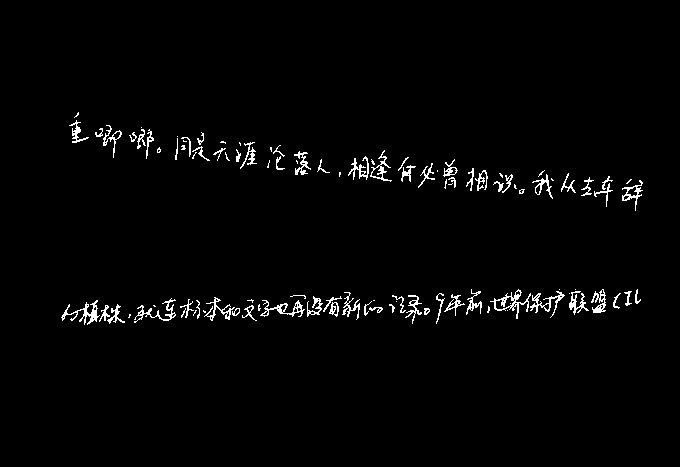 重唧唧。同是天涯沦落人,相逢何必曾相识。我从去年辞
的植株,就连标本和文字也再没有新的记录。9年前,世界保护联盟(IU